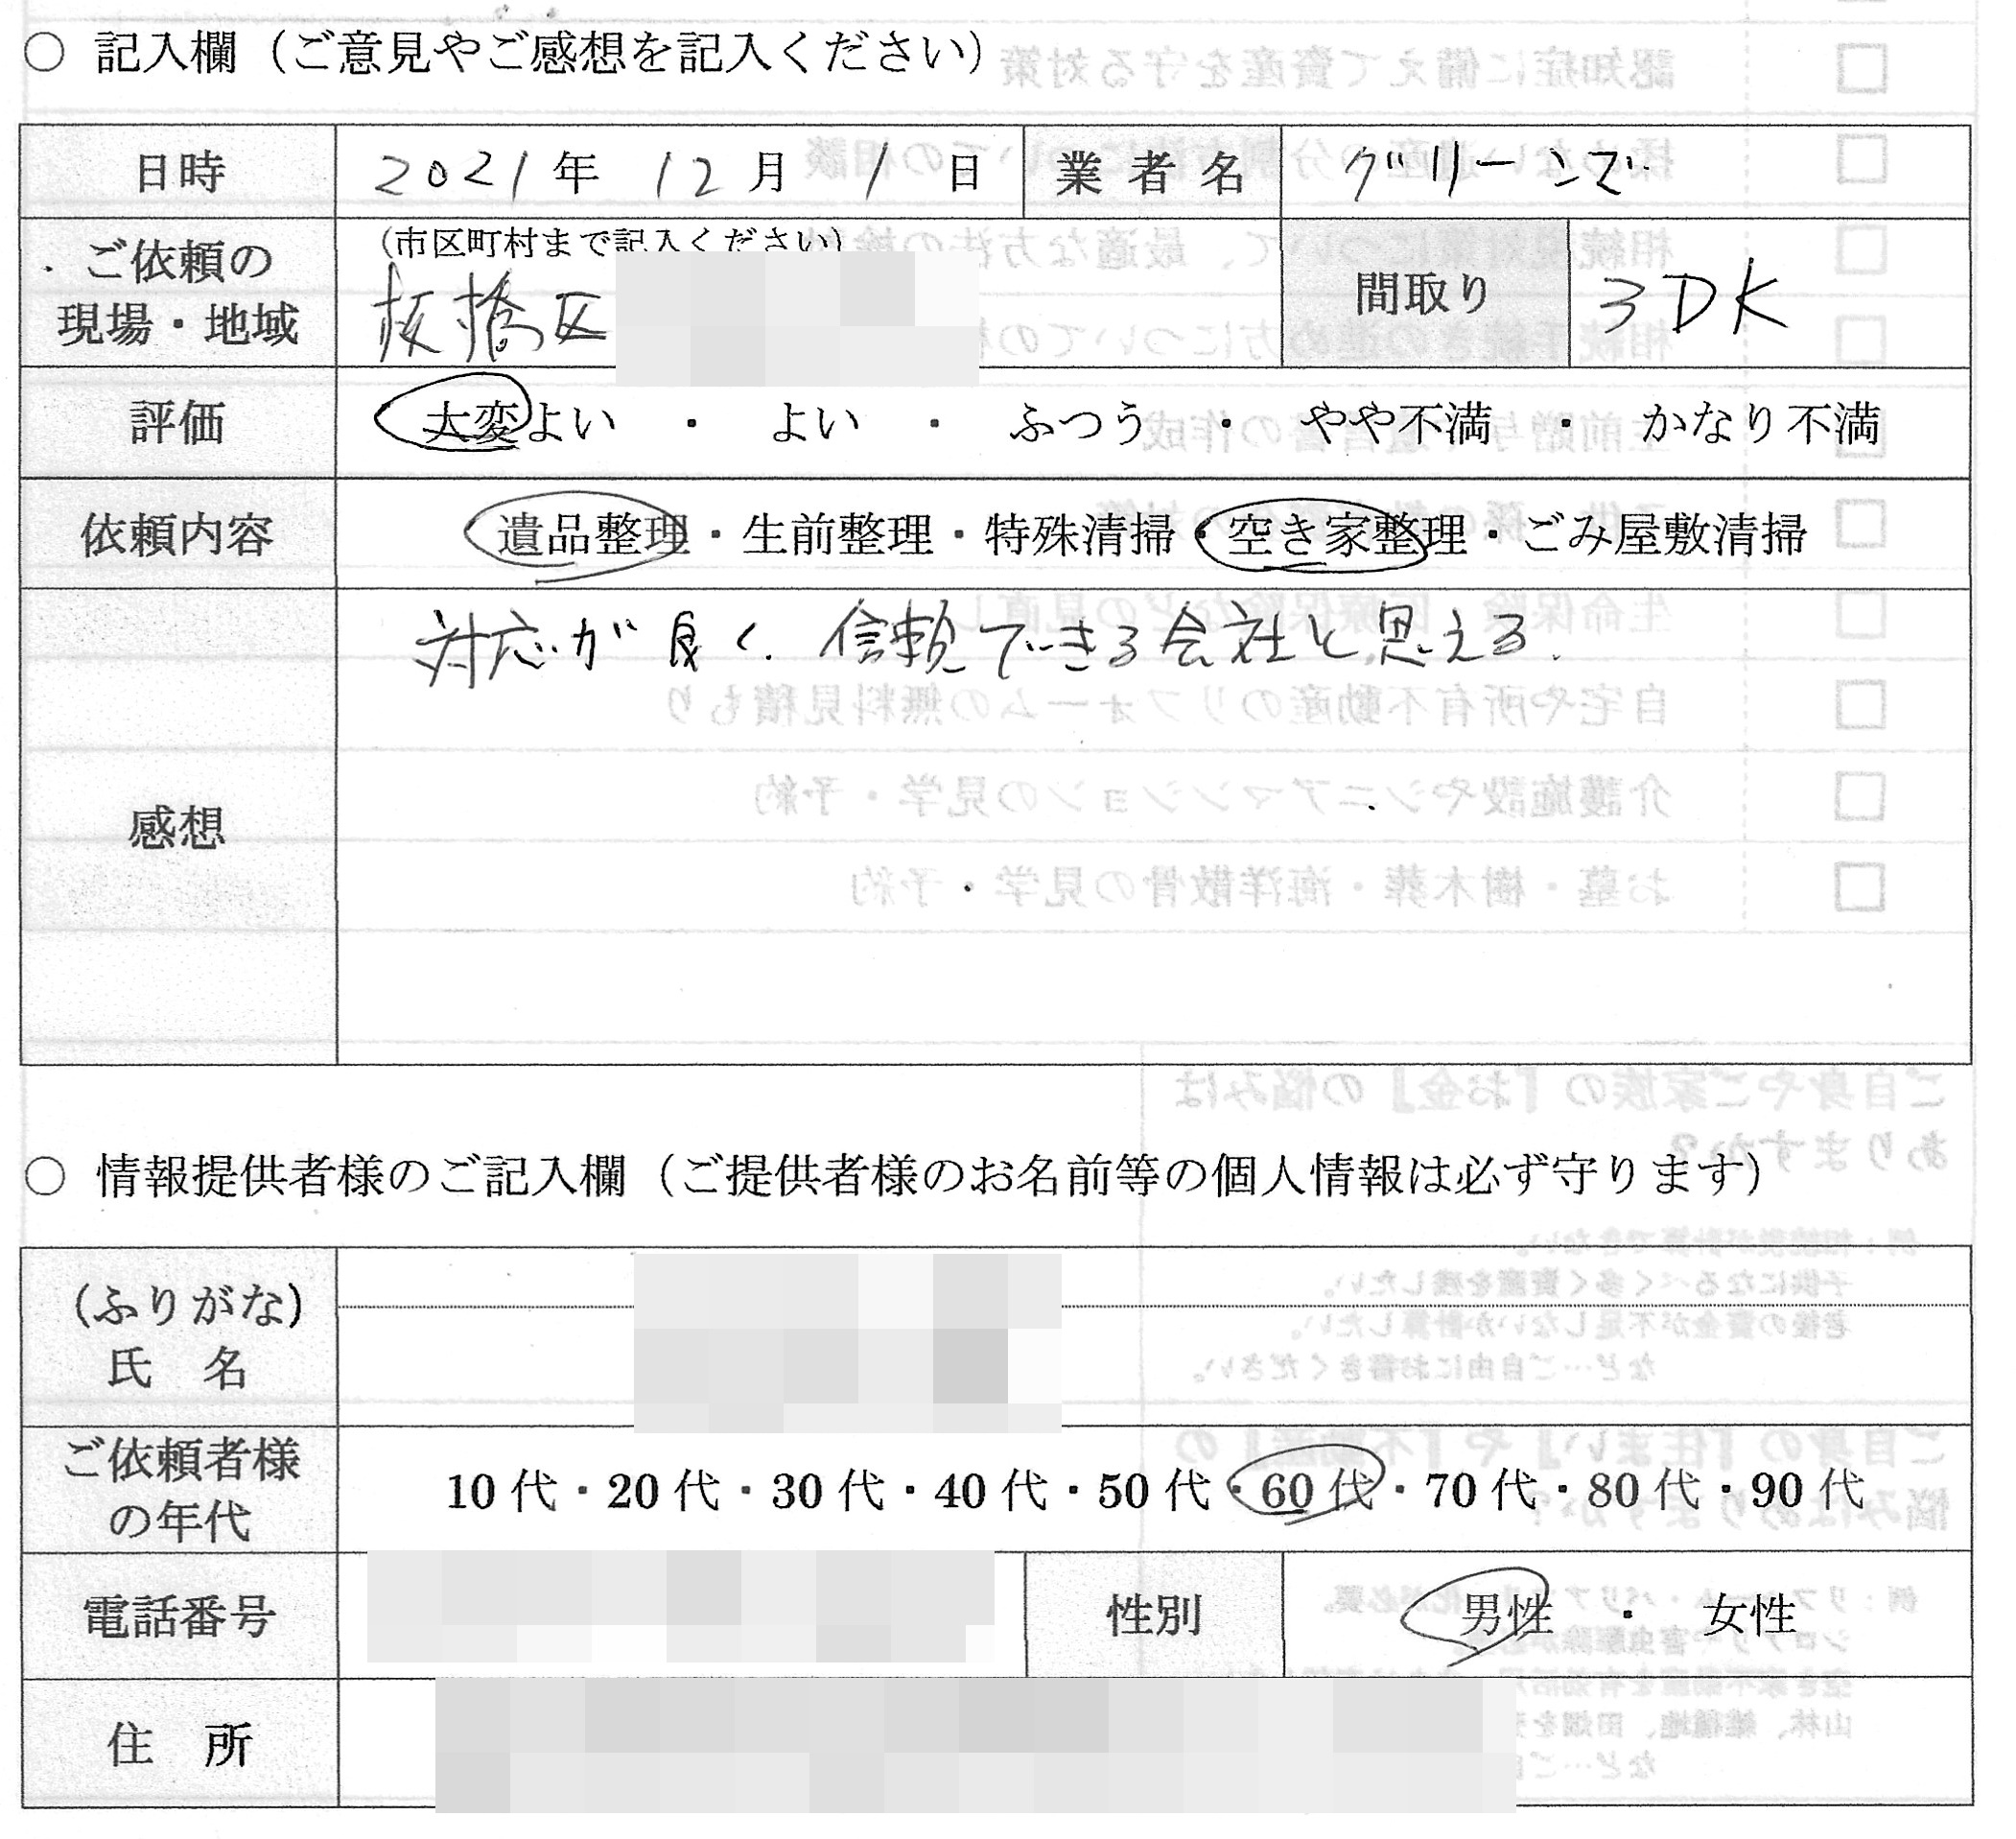 ○ 記入欄（ご意見やご感想を記入ください）
日時 2021年 12月 1日 業者名 グリーンズ
ご依頼の現場・地域 （市区町村まで記入ください） 間取り 3DK
板橋区
評価 大変よい ・ よい ・ ふつう ・ やや不満 ・ かなり不満
依頼内容 遺品整理・生前整理・特殊清掃・空き家整理・ごみ屋敷清掃
感想 対応が良く、信頼できる会社と思える。
○ 情報提供者様のご記入欄（ご提供者様のお名前等の個人情報は必ず守ります）
（ふりがな）
氏 名
ご依頼者様
の年代
10代・20代・30代・40代・50代・60代・70代・80代・90代
電話番号 性別 男性 ・ 女性
住 所